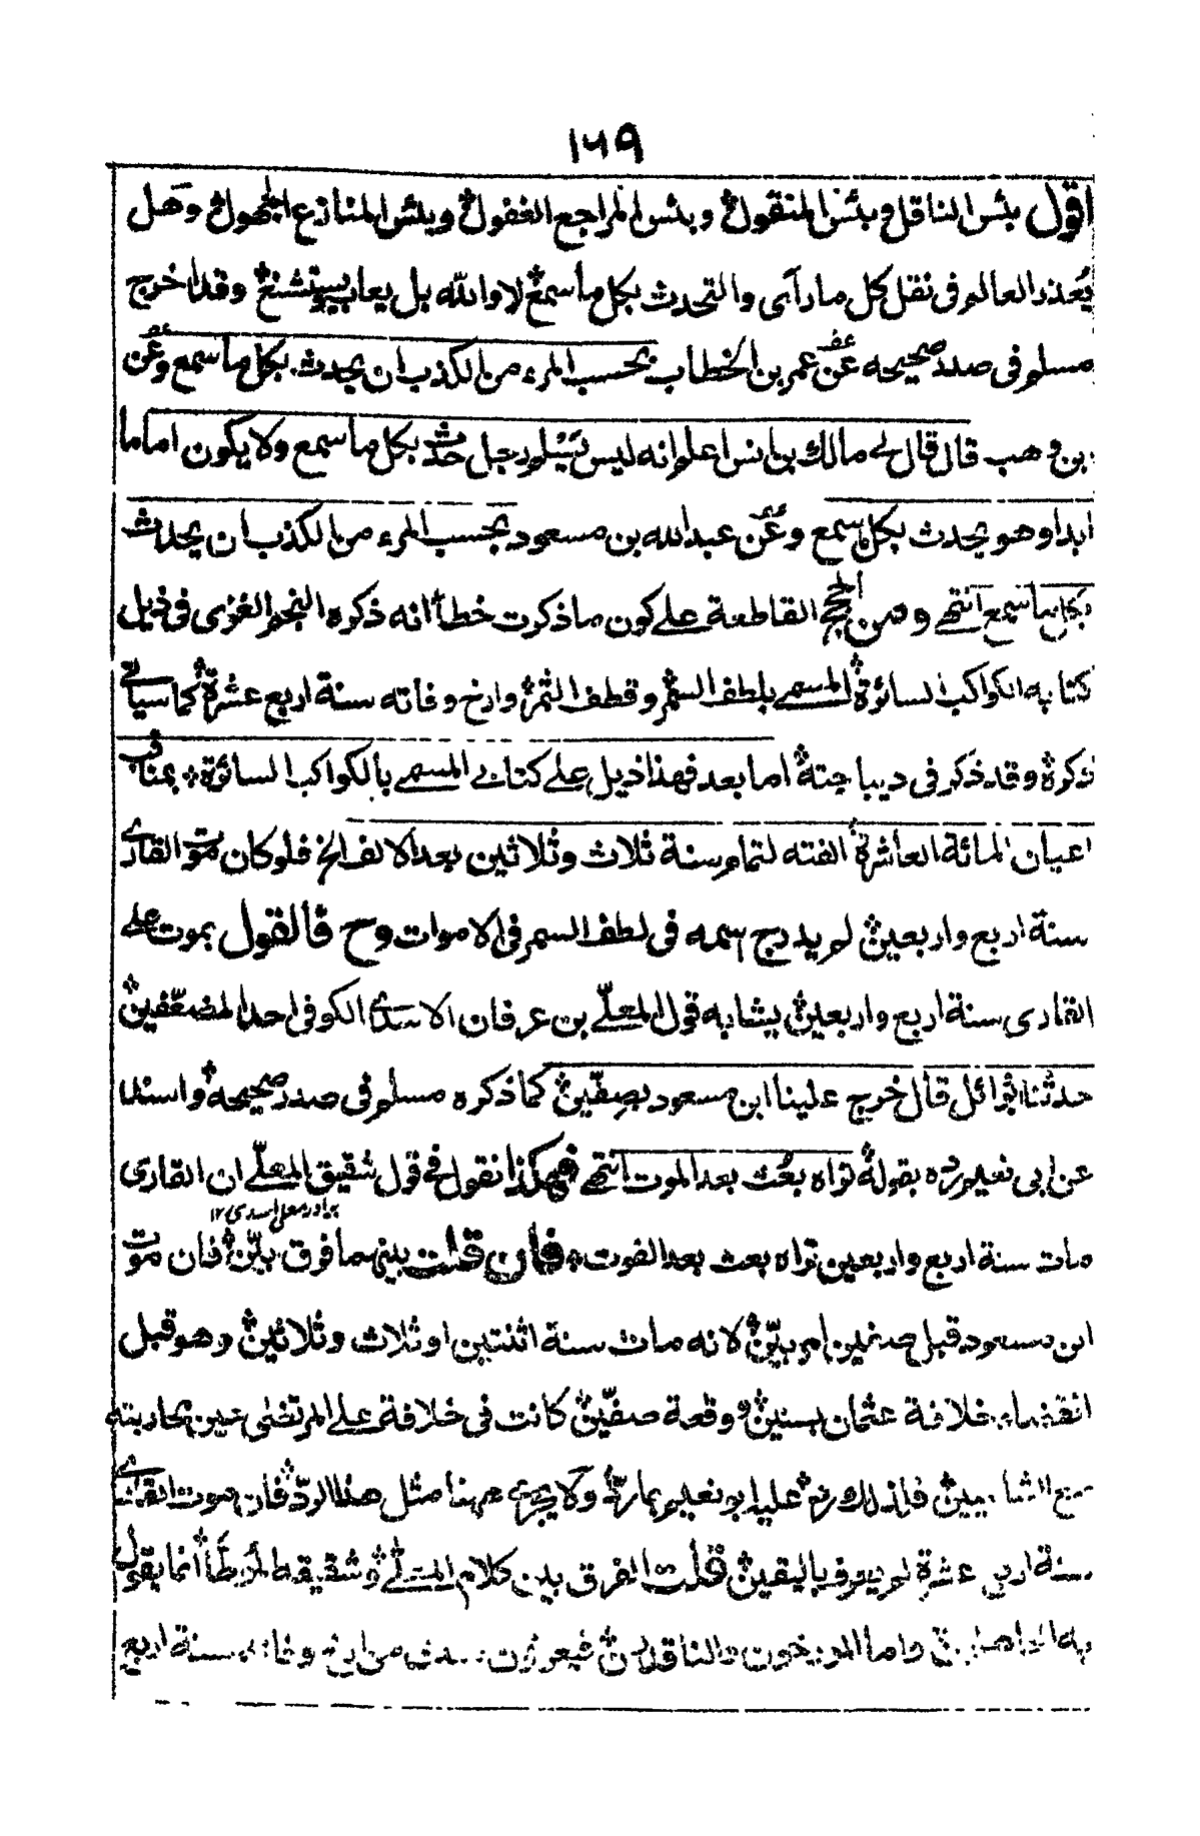 ١٦٩
اقول بئس الناقل وبئس المنقول وبئس المراجع الغفول وبئس المنازع الجهول وهل
يعذر العالم فى نقل كل ما رآى والتحدث بكل ما سمع لا والله بل يعاب ويستشنع وقد اخرج
مسلم فى صدر صحيحه عن عمر بن الخطاب بحسب المرء من الكذب ان يحدث بكل ما سمع وعن
بن وهب قال قال لى مالك بن انس اعلم انه ليس يسلم رجل حدث بكل ما سمع ولا يكون اماما
ابدا وهو يحدث بكل ما سمع وعن عبد الله بن مسعود بحسب المرء من الكذب ان يحدث
بكل ما سمع انتهى ومن الحجج القاطعة على كون ما ذكرت خطأ انه ذكره النجم الغزى فى ذيل
كتابه الكواكب السائرة المسمى بلطف السمر وقطف الثمر وارخ وفاته سنة اربع عشرة كما سياتى
ذكره وقد ذكر فى ديباجته اما بعد فهذا ذيل على كتابى المسمى بالكواكب السائرة بمناقب
اعيان المائة العاشرة الفته لتمام سنة ثلاث وثلاثين بعد الالف الخ فلو كان موت القارى
سنة اربع واربعين لم يدرج اسمه فى لطف السمر فى الاموات وح فالقول بموت على
القارى سنة اربع واربعين يشابه قول المعلّى بن عرفان الاسدى الكوفى احد المضعّفين
حدثنا ابو وائل قال خرج علينا ابن مسعود بصفّين كما ذكره مسلم فى صدر صحيحه واسند
عن ابى نعيم رده بقوله تراه بعث بعد الموت انتهى فهكذا نقول فى قول شقيق المعلّى ان القارى
برادر معلى اسدى ١٢
مات سنة اربع واربعين تراه بعث بعد الفوت فان قلت بينهما فرق بيّن فان موت
ابن مسعود قبل صفين امر بيّن لانه مات سنة اثنتين او ثلاث وثلاثين وهو قبل
انقضاء خلافة عثمان بسنين ووقعة صفّين كانت فى خلافة على المرتضى حين محاربته
مع الشاميين فلذلك رد عليه ابو نعيم بما ردّ ولا يجرى ههنا مثل هذا الردّ فان موت القارى
سنة اربع عشرة لم يعرف باليقين قلت الفرق بين كلام المعلّى وشقيقه انما يقول
به واما المورخون والناقلين من ارخ وفاته سنة اربع